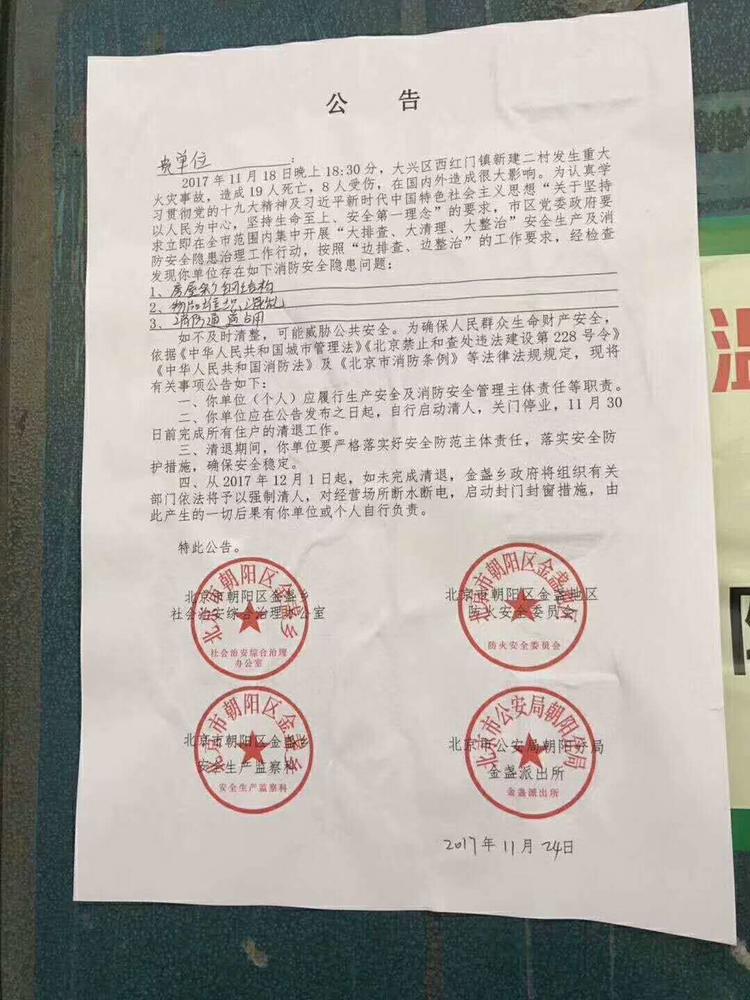 公 告
贵单位：
2017年11月18日晚上18:30分，大兴区西红门镇新建二村发生重大
火灾事故，造成19人死亡，8人受伤，在国内外造成很大影响。为认真学
习贯彻党的十九大精神及习近平新时代中国特色社会主义思想“关于坚持
以人民为中心，坚持生命至上、安全第一理念”的要求，市区党委政府要
求立即在全市范围内集中开展“大排查、大清理、大整治”安全生产及消
防安全隐患治理工作行动，按照“边排查、边整治”的工作要求，经检查
发现你单位存在如下消防安全隐患问题：
1、房屋彩钢结构
2、物品堆积混乱
3、消防通道占用
如不及时清整，可能威胁公共安全。为确保人民群众生命财产安全，
依据《中华人民共和国城市管理法》《北京禁止和查处违法建设第228号令》
《中华人民共和国消防法》及《北京市消防条例》等法律法规规定，现将
有关事项公告如下：
一、你单位（个人）应履行生产安全及消防安全管理主体责任等职责。
二、你单位应在公告发布之日起，自行启动清人，关门停业，11月30
日前完成所有住户的清退工作。
三、清退期间，你单位要严格落实好安全防范主体责任，落实安全防
护措施，确保安全稳定。
四、从2017年12月1日起，如未完成清退，金盏乡政府将组织有关
部门依法将予以强制清人，对经营场所断水断电，启动封门封窗措施，由
此产生的一切后果有你单位或个人自行负责。
特此公告。
北京市朝阳区金盏乡
社会治安综合治理办公室
北京市朝阳区金盏乡
社会治安综合治理
办公室
北京市朝阳区金盏地区
防火安全委员会
防火安全委员会
北京市朝阳区金盏乡
安全生产监察科
北京市朝阳区金盏乡
安全生产监察科
北京市公安局朝阳分局
金盏派出所
北京市公安局朝阳分局
金盏派出所
2017年11月24日